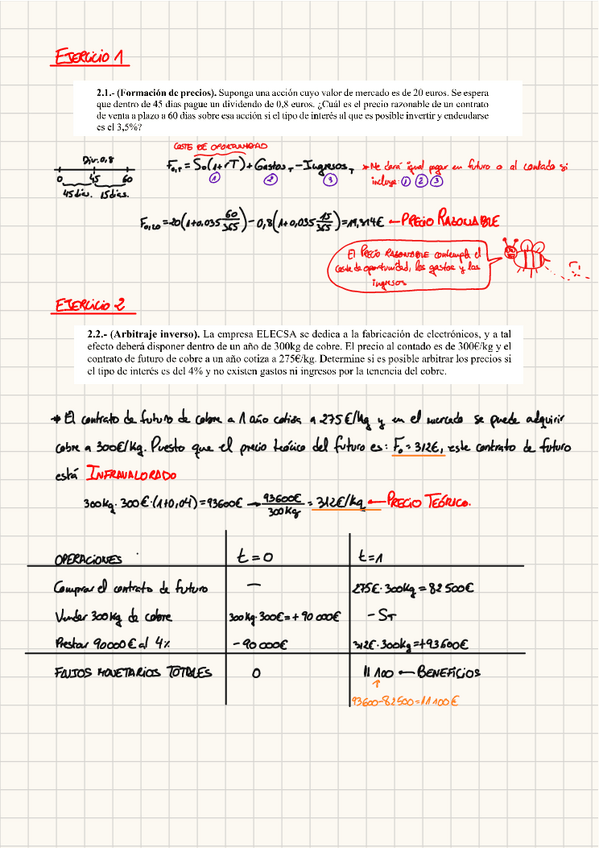 EJERCICIO 1
2.1.- (Formación de precios). Suponga una acción cuyo valor de mercado es de 20 euros. Se espera
que dentro de 45 días pague un dividendo de 0,8 euros. ¿Cuál es el precio razonable de un contrato
de venta a plazo a 60 días sobre esa acción si el tipo de interés al que es posible invertir y endeudarse
es el 3,5%?
COSTE DE OPORTUNIDAD
Div. 0,8
F₀,T = S₀(1+rT) + Gastos T - Ingresos T → Me dará igual pagar en futuro o al contado si
0 45 60
① ② ③ incluye ① ② ③
45 días. 15 días.
F₀,60 = 20(1+0,035 60/365) - 0,8(1+0,035 15/365) = 19,314€ ← PRECIO RAZONABLE
El PRECIO RAZONABLE contempla el
coste de oportunidad, los gastos y los
ingresos
EJERCICIO 2
2.2.- (Arbitraje inverso). La empresa ELECSA se dedica a la fabricación de electrónicos, y a tal
efecto deberá disponer dentro de un año de 300kg de cobre. El precio al contado es de 300€/kg y el
contrato de futuro de cobre a un año cotiza a 275€/kg. Determine si es posible arbitrar los precios si
el tipo de interés es del 4% y no existen gastos ni ingresos por la tenencia del cobre.
→ El contrato de futuro de cobre a 1 año cotiza a 275€/Kg y en el mercado se puede adquirir
cobre a 300€/Kg. Puesto que el precio teórico del futuro es: F₀ = 312€, este contrato de futuro
está INFRAVALORADO
300kg · 300€ · (1+0,04) = 93600€ → 93600€/300Kg = 312€/Kg ← PRECIO TEÓRICO.
OPERACIONES t=0 t=1
Comprar el contrato de futuro — 275€·300kg = 82500€
Vender 300Kg de cobre 300Kg·300€ = +90000€ - ST
Prestar 90000€ al 4% -90000€ 312€·300kg = +93600€
FLUJOS MONETARIOS TOTALES 0 11100 ← BENEFICIOS
93600-82500=11100€